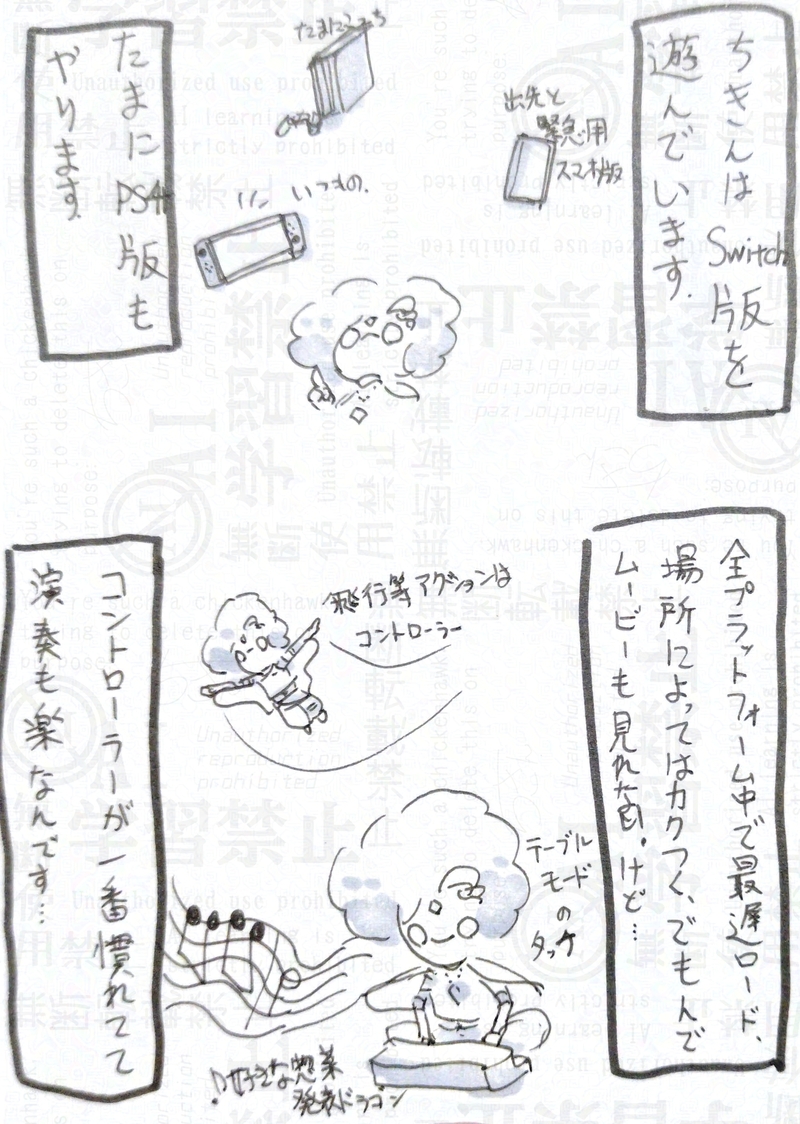 ちきんはSwitch版を
遊んでいます。
出先と
緊急用
スマホ版
たまにこっち
いつもの
たまにPS4版も
やります。
全プラットフォーム中で最遅ロード、
場所によってはカクつく、でもんで
ムービーも見れた自!けど…
飛行等アクションは
コントローラー
テーブル
モード
の
タッケ
♪好きな惣菜
発表ドラゴン
コントローラーが一番慣れてて
演奏も楽なんです…
無断使用禁止
AI学習禁止
無断転載禁止
Unauthorized use prohibited
AI learning is
strictly prohibited
Unauthorized
reproduction
prohibited
You're such a chickenhawk
trying to delete this on
purpose.